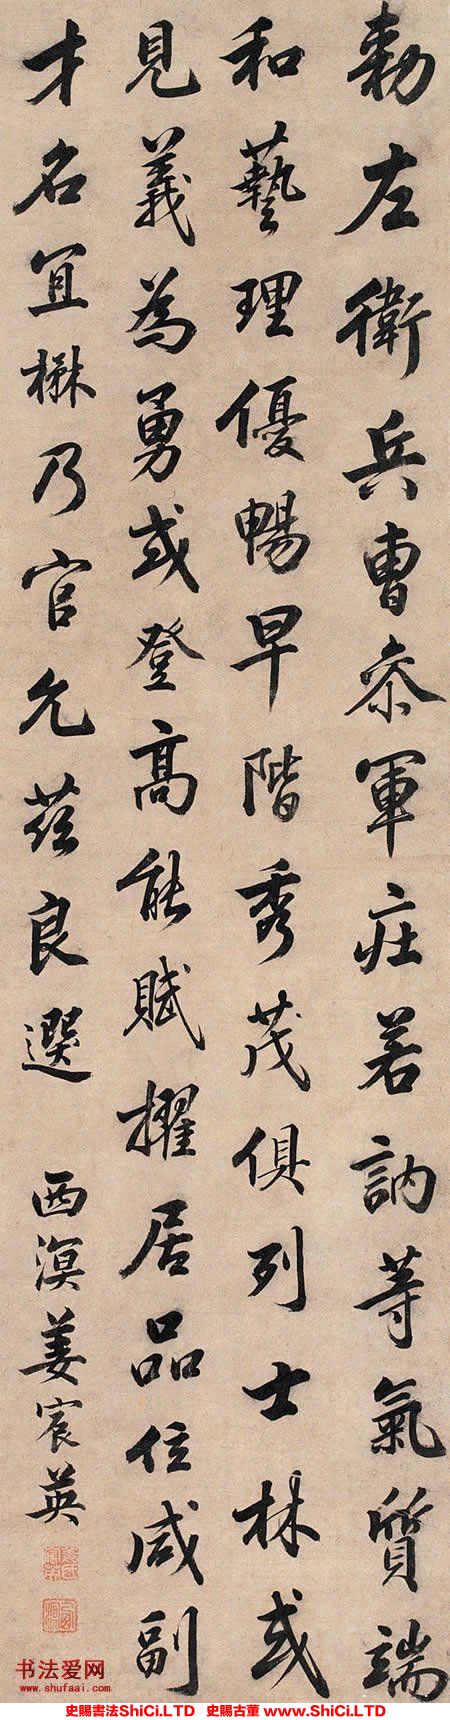 勅左衛兵曹叅軍庄若訥等氣質端
和藝理優暢早階秀茂俱列士林或
見義為勇或登高能賦擢居品位咸副
才名宜楙乃官允茲良選
西溟姜宸英
书法爱网
www.shufaai.com
史賜書法ShiCi.LTD 史賜古董 www.ShiCi.LTD